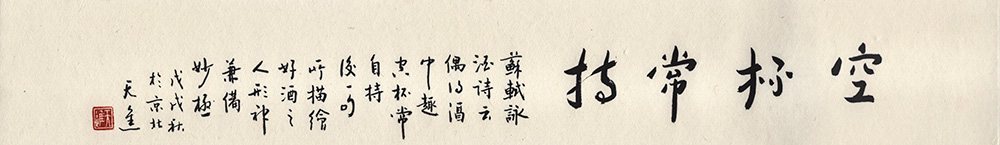 空杯常持
蘇軾詠
酒詩云
偶得酒
中趣
空杯常
自持
後
所描繪
好酒之
人形神
兼備
妙極
戊戌秋
於京北
天